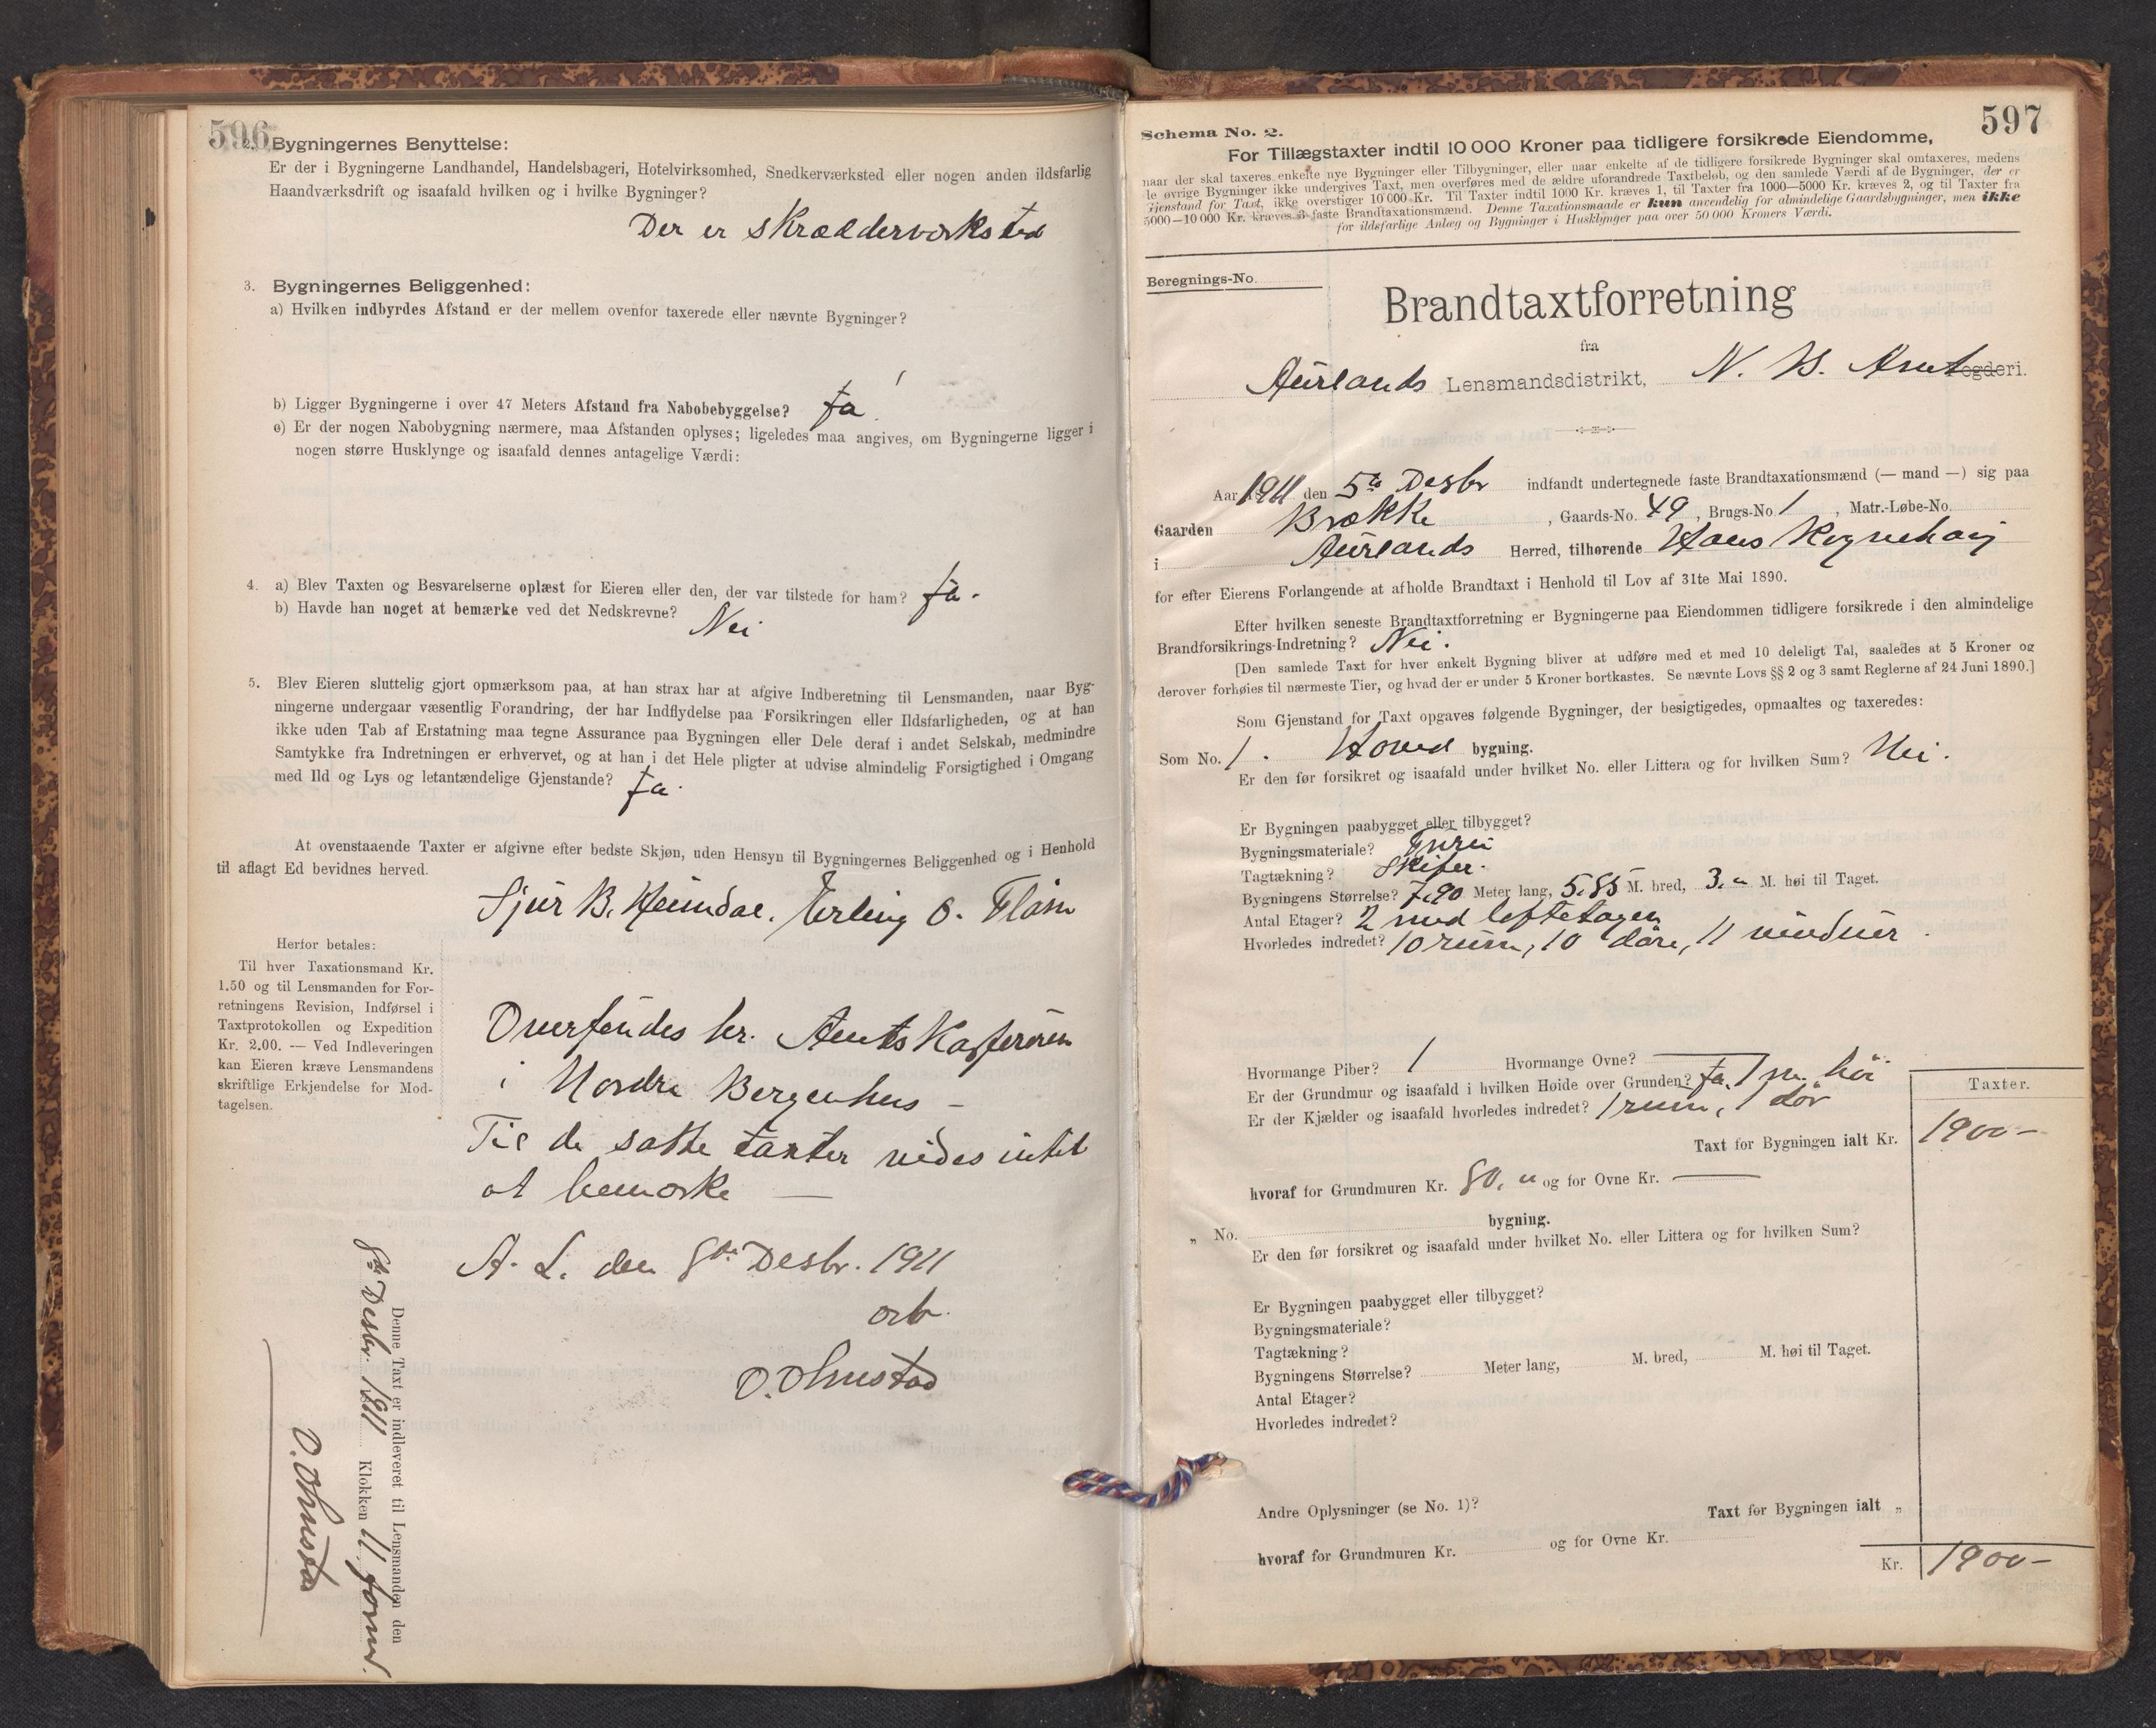 596
2. Bygningernes Benyttelse:
Er der i Bygningerne Landhandel, Handelsbageri, Hotelvirksomhed, Snedkerværksted eller nogen anden ildsfarlig
Haandværksdrift og isaafald hvilken og i hvilke Bygninger?
Der er skrædderverksted
3. Bygningernes Beliggenhed:
a) Hvilken indbyrdes Afstand er der mellem ovenfor taxerede eller nævnte Bygninger?
b) Ligger Bygningerne i over 47 Meters Afstand fra Nabobebyggelse? Ja!
c) Er der nogen Nabobygning nærmere, maa Afstanden oplyses; ligeledes maa angives, om Bygningerne ligger i
nogen større Husklynge og isaafald dennes antagelige Værdi:
4. a) Blev Taxten og Besvarelserne oplæst for Eieren eller den, der var tilstede for ham? Ja.
b) Havde han noget at bemærke ved det Nedskrevne? Nei
5. Blev Eieren sluttelig gjort opmærksom paa, at han strax har at afgive Indberetning til Lensmanden, naar Byg-
ningerne undergaar væsentlig Forandring, der har Indflydelse paa Forsikringen eller Ildsfarligheden, og at han
ikke uden Tab af Erstatning maa tegne Assurance paa Bygningen eller Dele deraf i andet Selskab, medmindre
Samtykke fra Indretningen er erhvervet, og at han i det Hele pligter at udvise almindelig Forsigtighed i Omgang
med Ild og Lys og letantændelige Gjenstande? Ja.
At ovenstaaende Taxter er afgivne efter bedste Skjøn, uden Hensyn til Bygningernes Beliggenhed og i Henhold
til aflagt Ed bevidnes herved.
Sjur B. Heimdal. Erling O. Flåm
Herfor betales:
Til hver Taxationsmand Kr.
1.50 og til Lensmanden for For-
retningens Revision, Indførsel i
Taxtprotokollen og Expedition
Kr. 2.00. — Ved Indleveringen
kan Eieren kræve Lensmandens
skriftlige Erkjendelse for Mod-
tagelsen.
Oversendes hr. Amtskasseren
i Nordre Bergenhus –
Til de satte taxter vides intet
at bemærke —
A. L. den 8de Desbr. 1911
arb.
O. Ohnstad
Denne Taxt er indleveret til Lensmanden den
8de Desbr. 1911 Klokken 11 form.
O. Ohnstad
597
Schema No. 2.
For Tillægstaxter indtil 10 000 Kroner paa tidligere forsikrede Eiendomme,
naar der skal taxeres enkelte nye Bygninger eller Tilbygninger, eller naar enkelte af de tidligere forsikrede Bygninger skal omtaxeres, medens
de øvrige Bygninger ikke undergives Taxt, men overføres med de ældre uforandrede Taxtbeløb, og den samlede Værdi af de Bygninger, der er
Gjenstand for Taxt, ikke overstiger 10 000 Kr. Til Taxter indtil 1000 Kr. kræves 1, til Taxter fra 1000—5000 Kr. kræves 2, og til Taxter fra
5000—10 000 Kr. kræves 3 faste Brandtaxationsmænd. Denne Taxationsmaade er kun anvendelig for almindelige Gaardsbygninger, men ikke
for ildsfarlige Anlæg og Bygninger i Husklynger paa over 50 000 Kroners Værdi.
Beregnings-No.
Brandtaxtforretning
fra
Aurlands Lensmandsdistrikt, N. B. Amt Fogderi.
Aar 1911 den 5te Desbr indfandt undertegnede faste Brandtaxationsmænd (— mand —) sig paa
Gaarden Brække, Gaards-No. 49, Brugs-No. 1, Matr.-Løbe-No.
i Aurlands Herred, tilhørende Hans
for efter Eierens Forlangende at afholde Brandtaxt i Henhold til Lov af 31te Mai 1890.
Efter hvilken seneste Brandtaxtforretning er Bygningerne paa Eiendommen tidligere forsikrede i den almindelige
Brandforsikrings-Indretning? Nei.
[Den samlede Taxt for hver enkelt Bygning bliver at udføre med et med 10 deleligt Tal, saaledes at 5 Kroner og
derover forhøies til nærmeste Tier, og hvad der er under 5 Kroner bortkastes. Se nævnte Lovs §§ 2 og 3 samt Reglerne af 24 Juni 1890.]
Som Gjenstand for Taxt opgaves følgende Bygninger, der besigtigedes, opmaaltes og taxeredes:
Som No. 1. Hoved bygning.
Er den før forsikret og isaafald under hvilket No. eller Littera og for hvilken Sum? Nei.
Er Bygningen paabygget eller tilbygget?
Bygningsmateriale? Furu
Tagtækning? Skifer.
Bygningens Størrelse? 7,90 Meter lang, 5.85 M. bred, 3. " M. høi til Taget.
Antal Etager? 2 med loftetagen
Hvorledes indredet? 10 rum, 10 døre, 11 vinduer.
Hvormange Piber? 1 Hvormange Ovne? —
Er der Grundmur og isaafald i hvilken Høide over Grunden? Ja, 1 m. høi
Er der Kjælder og isaafald hvorledes indredet? 1 rum, 1 dør
Taxter.
Taxt for Bygningen ialt Kr. 1900 –
hvoraf for Grundmuren Kr. 80. " og for Ovne Kr. —
„ No. bygning.
Er den før forsikret og isaafald under hvilket No. eller Littera og for hvilken Sum?
Er Bygningen paabygget eller tilbygget?
Bygningsmateriale?
Tagtækning?
Bygningens Størrelse? Meter lang, M. bred, M. høi til Taget.
Antal Etager?
Hvorledes indredet?
Andre Oplysninger (se No. 1)? Taxt for Bygningen ialt „
hvoraf for Grundmuren Kr. og for Ovne Kr.
Kr. 1900 –